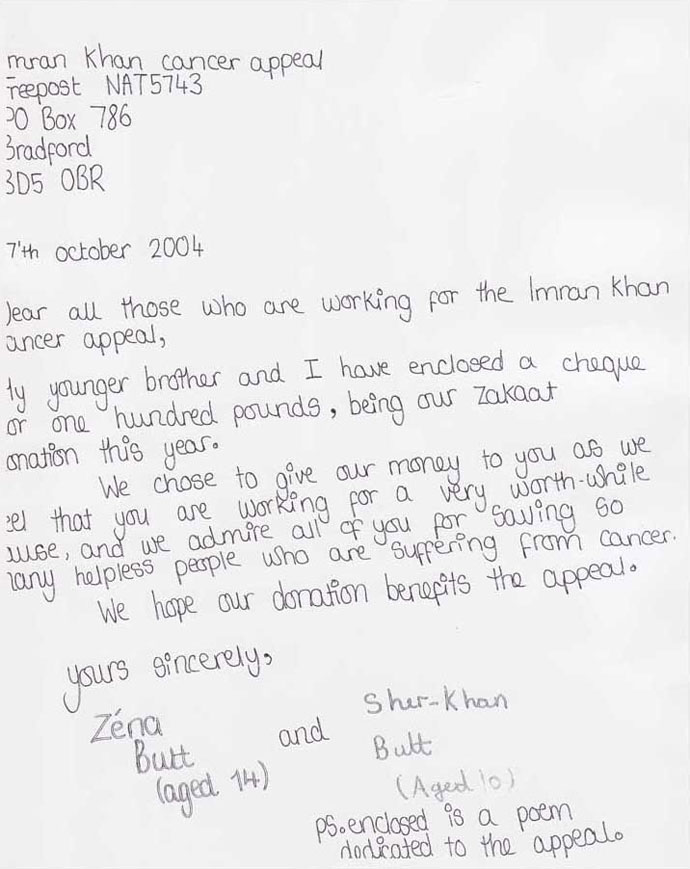 mran Khan cancer appeal
reepost NAT5743
PO Box 786
Bradford
BD5 0BR
7'th october 2004
Dear all those who are working for the Imran Khan
ancer appeal,
ty younger brother and I have enclosed a cheque
or one hundred pounds, being our Zakaat
onation this year.
We chose to give our money to you as we
eel that you are working for a very worth-while
ause, and we admire all of you for saving so
any helpless people who are suffering from cancer.
We hope our donation benefits the appeal.
yours sincerely,
Zéna
Butt
(aged 14)
and
Sher-Khan
Butt
(Aged 10)
ps. enclosed is a poem
dedicated to the appeal.